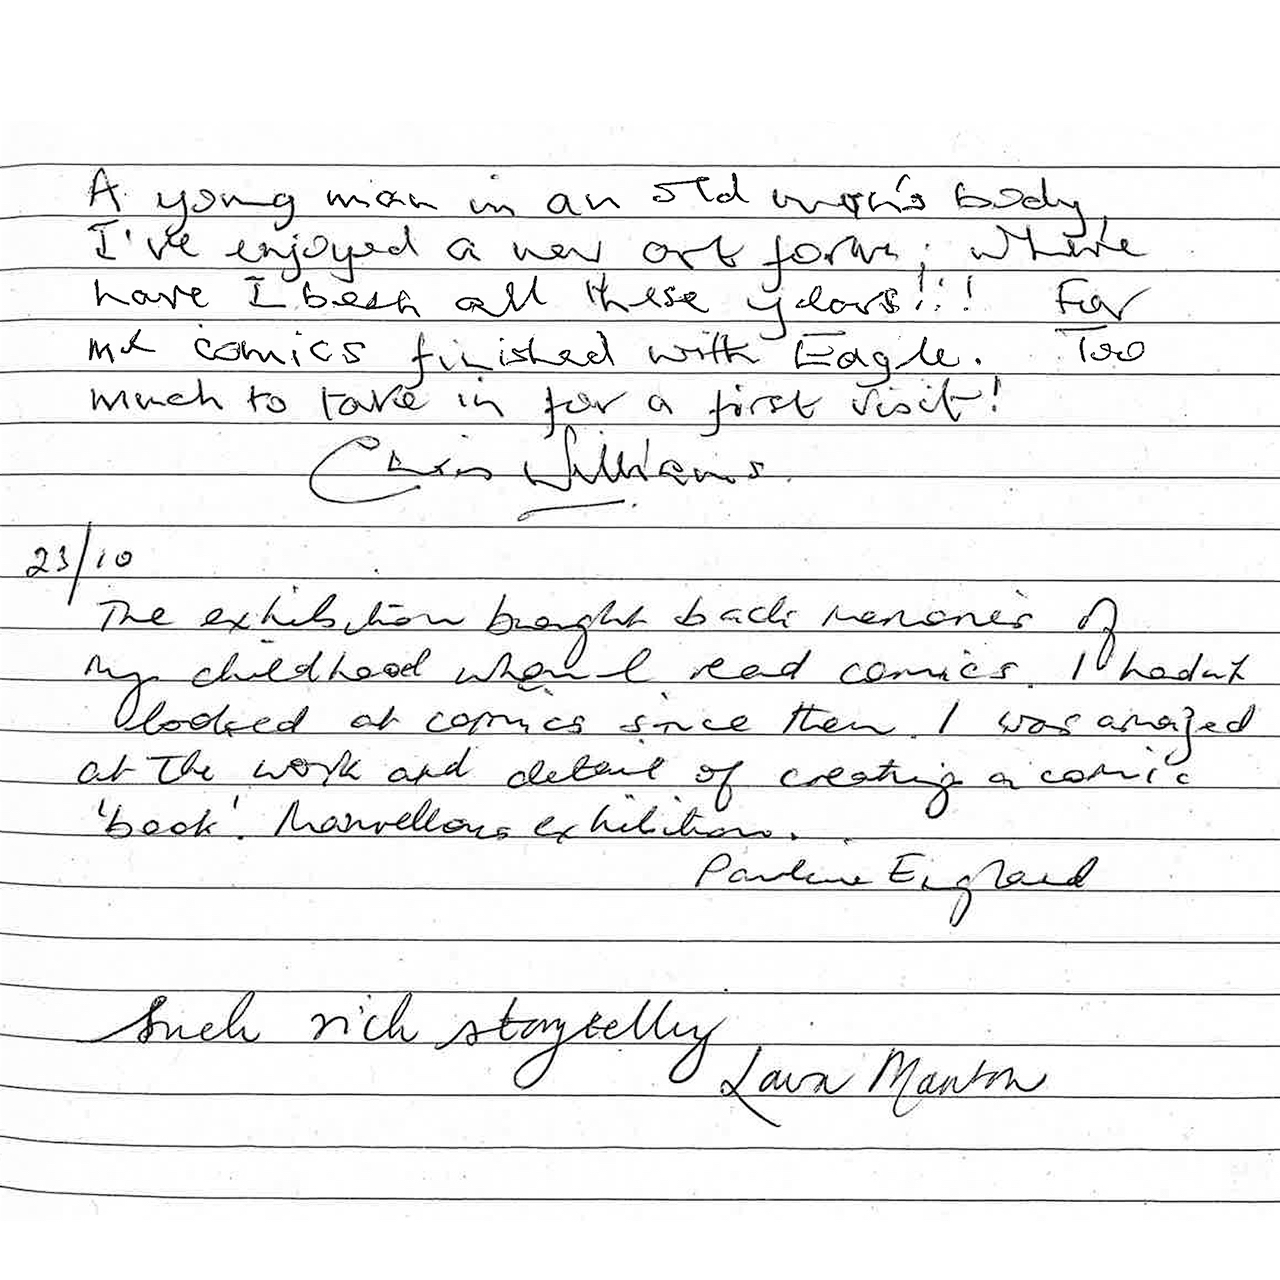 A young man in an old man's body,
I've enjoyed a new art form; where
have I been all these years!!! For
me comics finished with Eagle. Too
much to take in for a first visit!
Chris Williams.
23/10
The exhibition brought back memories of
my childhood when I read comics. I hadnt
looked at comics since then. I was amazed
at the work and detail of creating a comic
'book'. Marvellous exhibition.
Pauline England
Such rich storytelling
Manton